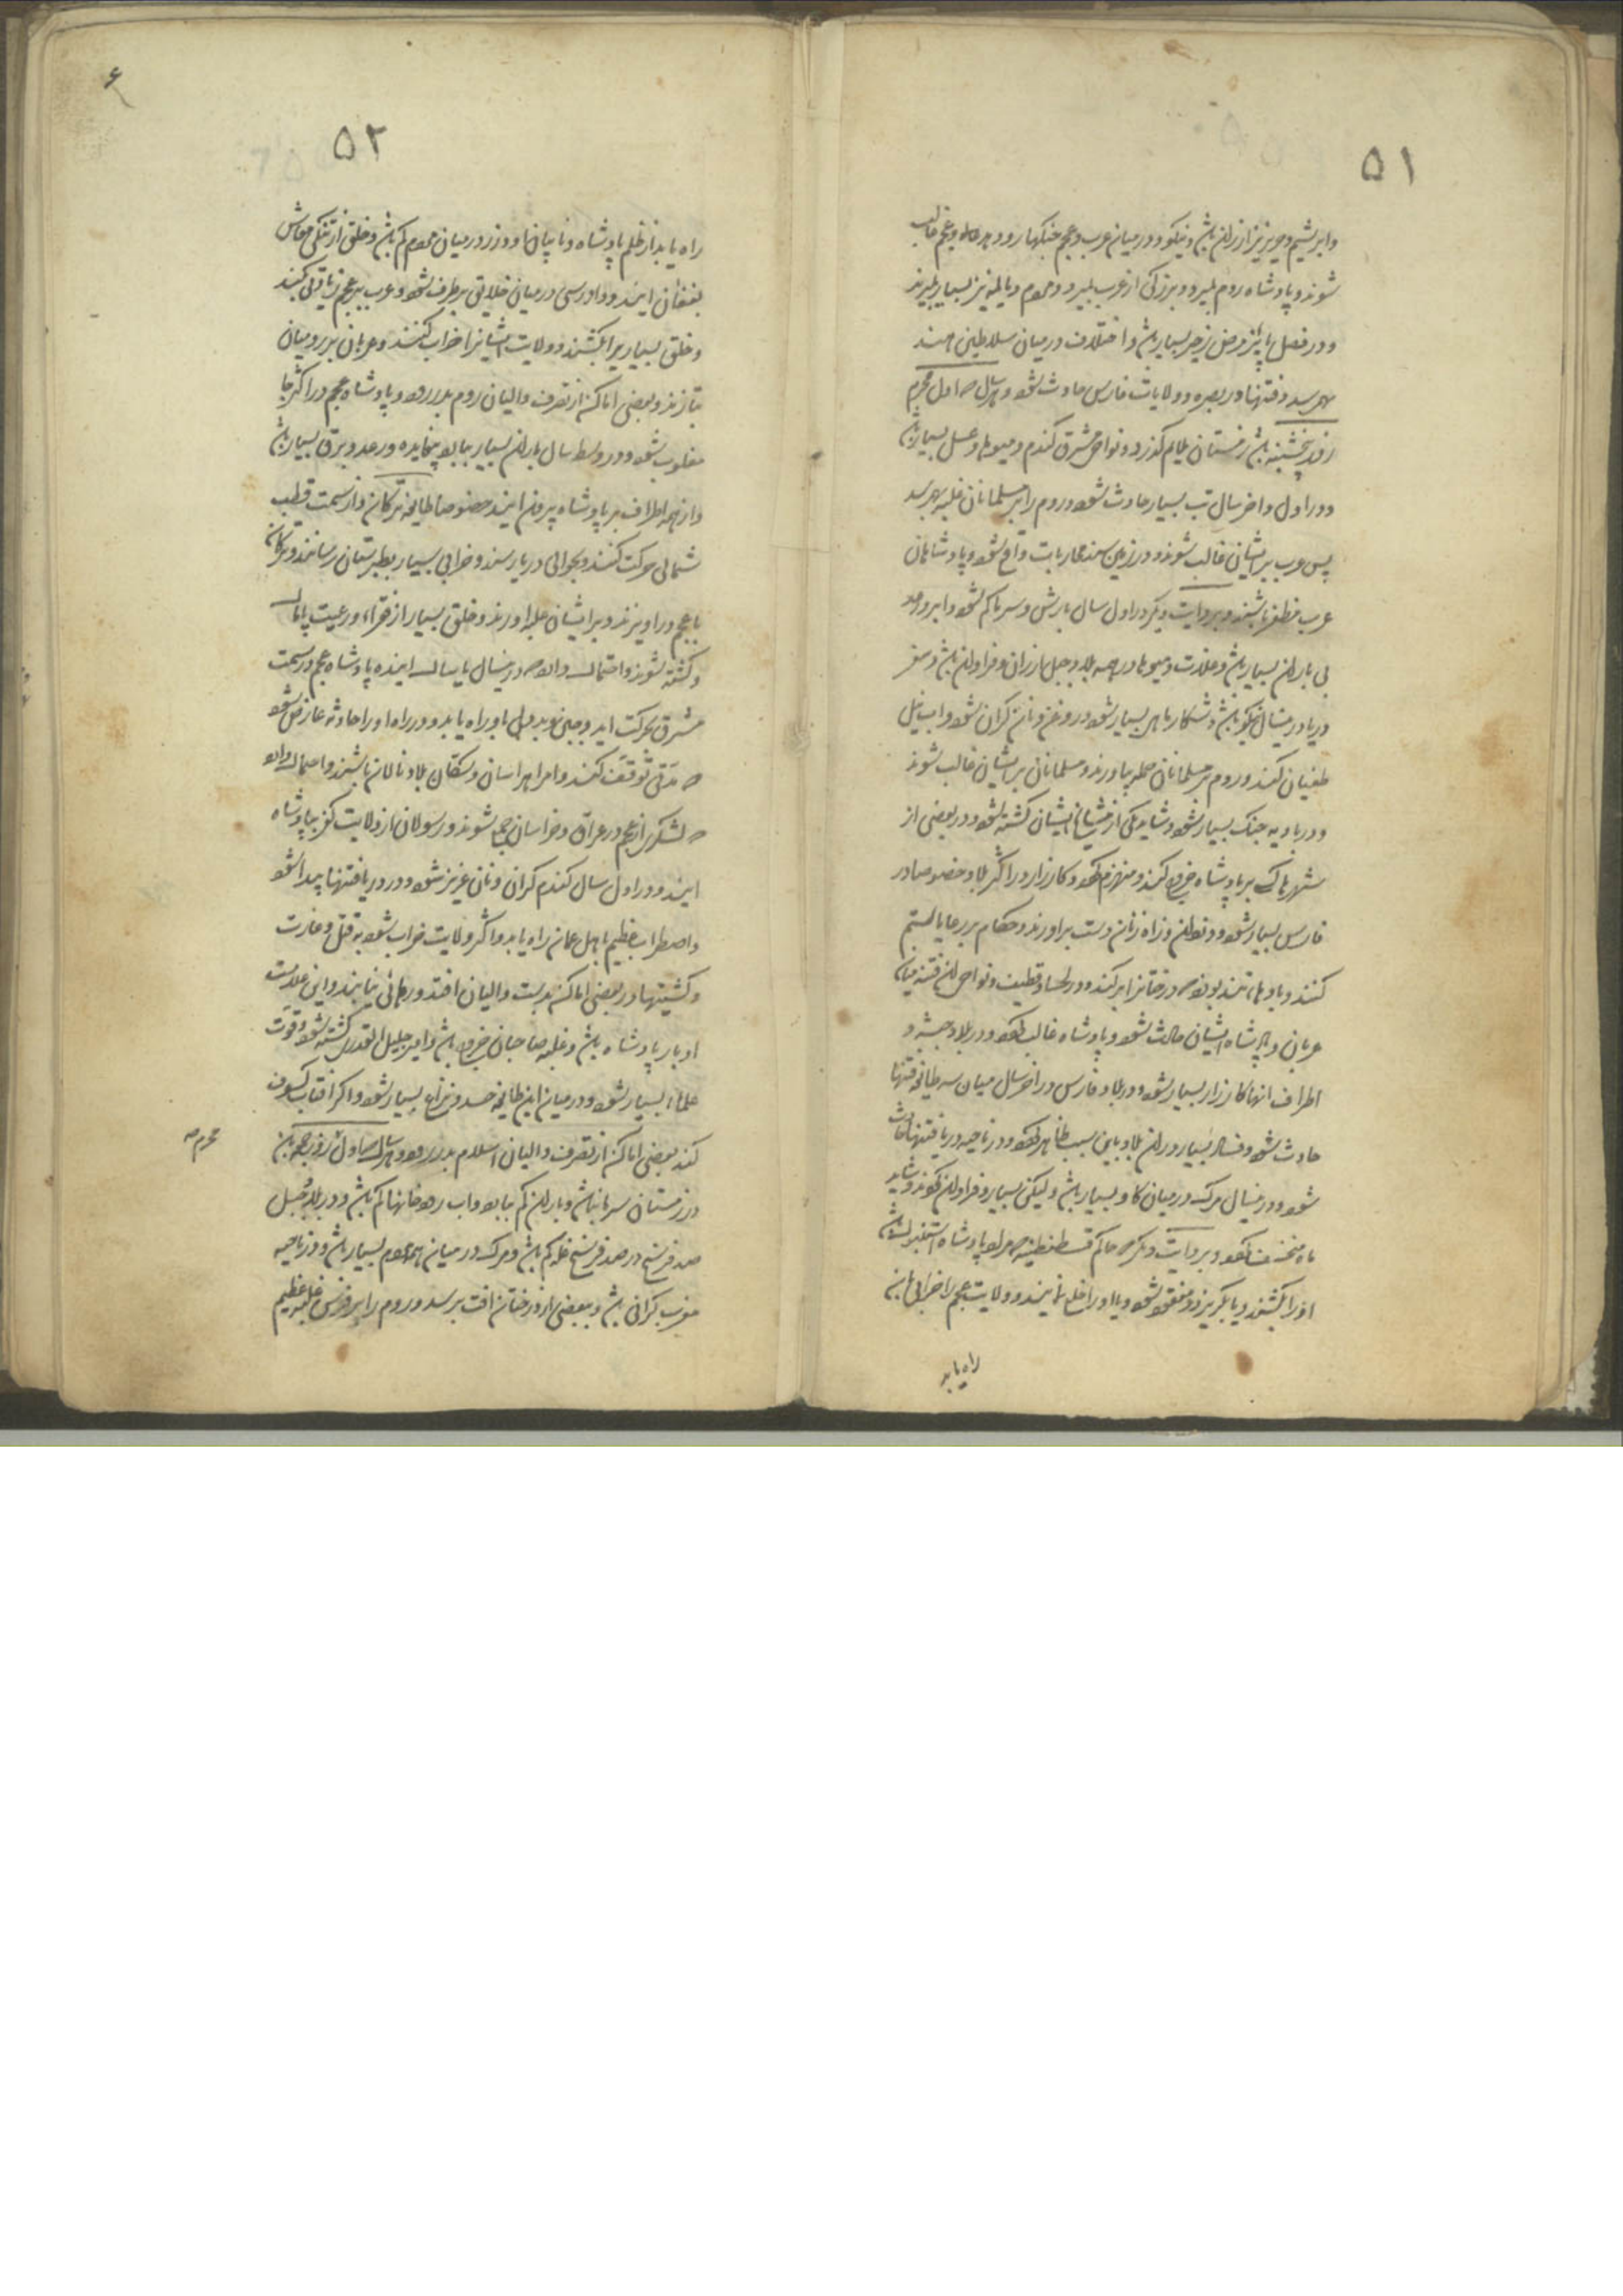 ۵۱
وابریشم وحریر نیز ارزان باشد ونیکو ودر میان عرب وعجم جنکها رود وعجم غالب
شوند وپادشاه روم بمیرد وبزرکی از عرب بمیرد ومردم دیالمه نیز بسیار بمیرند
ودر فصل پائیز مرض زحیر بسیار باشد واختلاف در میان سلاطین هند
بهم رسد وفتنها در بصره وولایات فارس حادث شود وهر سال که اول محرم
روز پنجشنبه باشد زمستان ملایم کذرد ودر نواحی مشرق کندم ومیوها وعسل بسیار باشد
ودر اول واخر سال تب بسیار حادث شود وروم را بر مسلمانان غلبه بهم رسد
پس عرب بر ایشان غالب شوند ودر زمین سند محاربات واقع شود وپادشاهان
عرب ظفر یابند وبروایت دیکر در اول سال بارش وسرما کم شود وابر ورعد
بی باران بسیار باشد وغلات ومیوها در همه بلاد جبل ارزان وفراوان باشد وسفر
دریا در اینسال نیکو باشد وشکار ماهی بسیار شود وروغن ونان کران شود واب نیل
طغیان کند وروم بر مسلمانان حمله بیاورند ومسلمانان بر ایشان غالب شوند
ودر بادیه جنک بسیار شود وشاید یکی از مشایخ ایشان کشته شود ودر بعضی از
شهرها کسی بر پادشاه خروج کند ومنهزم شود وکارزار در اکثر بلاد خصوصا در
فارس بسیار شود ودزدان وراه زنان دست براورند وحکام بر رعایا ستم
کنند وبادهای تند بوزد که درختانرا بر کند ودر لحسا وقطیف ونواحی ان فتنه میان
عربان وپادشاه ایشان حادث شود وپادشاه غالب شود ودر بلاد حبشه و
اطراف انها کارزار بسیار شود ودر بلاد فارس در اخر سال میان سه طایفه فتنها
حادث شود وفساد بسیار در ان بلاد باین سبب ظاهر شود ودر ناحیه دریا فتنها حادث
شود ودر اینسال مرک در میان کاو بسیار باشد ولیکن بسیار وفراوان شوند وشاید
ماه منخسف شود وبروایت دیکر حاکم قسطنطنیه که مراد پادشاه استنبول باشد
اورا بکشند ویا بکریزد ومفقود شود ویا اورا خلع نمایند وولایت عجم را خرابیها
راه یابد
۵۲
راه یابد از ظلم پادشاه ونایبان او وزر در میان مردم کم باشد وخلق از تنکی معاش
بفغان ایند ودادرسی در میان خلایق برطرف شود وعرب بر عجم زیادتی کنند
وخلق بسیاریرا بکشند وولایت ایشانرا خراب کنند وعربان بر رومیان
بتازند وبعضی اماکن از تصرف والیان روم بدر رود وپادشاه عجم در اکثر جا
مغلوب شود ودر وسط سال باران بسیار بیاید ورعد وبرق بسیار باشد
واز همه اطراف بر پادشاه بیرون ایند خصوصا طایفه ترکان واز سمت قطب
شمالی حرکت کنند وبحوالی دریا رسند وخرابی بسیار بطبرستان رسانند وترکان
با عجم دراویزند وبر ایشان غلبه اورند وخلق بسیار از فقراء ورعیت پامال
وکشته شوند واحتمال دارد که در اینسال یا سال اینده پادشاه عجم در سمت
مشرق بحرکت اید وجبن وبددلی باو راه یابد ودر راه اورا حادثه عارض شود
که مدتی توقف کنند وامرا هراسان وسکان بلاد نالان باشند واحتمال دارد
که لشکری از عجم در عراق وخراسان جمع شوند ورسولان از ولایت کفر بپادشاه
ایند ودر اول سال کندم کران ونان عزیز شود ودر دریا فتنها پیدا شود
واضطراب عظیم باهل عمان راه یابد واکثر ولایت خراب شود بقتل وغارت
وکشتیها در بعضی اماکن بدست والیان افتد ورهائی نیابند واین علامت
ادبار پادشاه باشد وغلبه صاحبان خروج باشد وامیر جلیل القدری کشته شود وقوت
علماء بسیار شود ودر میان این طایفه حسد ونزاع بسیار شود واکر افتاب کسوف
کند بعضی اماکن از تصرف والیان اسلام بدر رود وهر سال که اول روز جمعه باشد
محرم صح
در زمستان سرما نباشد وباران کم بیاید واب رودخانها کم باشد ودر بلاد جبل
صد فرسخ در صد فرسخ غله کم باشد ومرک در میان همه مردم بسیار باشد ودر ناحیه
مغرب کرانی باشد وببعضی از درختان افت برسد وروم را بر فرس غلبه عظیم